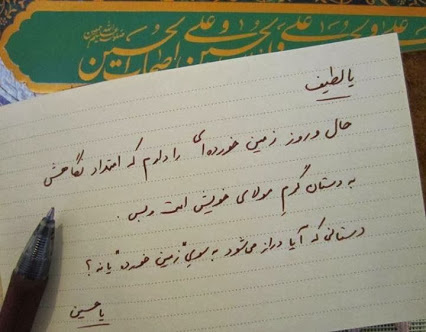 وعلی علی بن الحسین وعلی
الحسین اصحاب الحسین
یا لطیف
حال و روز زمین خورده‌ای را دارم که امتداد نگاهش
به دستان گرم مولای خویش است و بس .
دستانی که آیا دراز می‌شود به سوی "زمین خورده" یا نه ؟
یا حسین